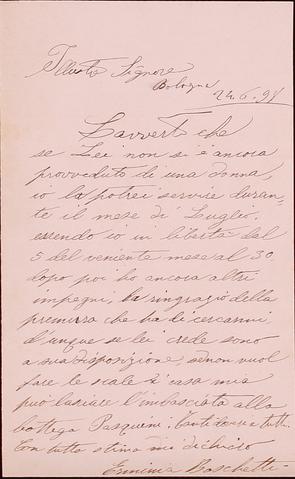 Illustre Signore
Bologna
24.6.98
L'avverto che
se Lei non si è ancora
provveduto di una donna,
io la potrei servire duran-
te il mese di Luglio,
essendo io in libertà dal
5 del veniente mese al 30
dopo poi ho ancora altri
impegni, la ringrazio della
premura che ha di cercarmi
d'unque se lei crede sono
a sua disposizione, se non vuol
fare le scale di casa mia
può lasciare l'imbasciata alla
bottega Pasquini,
Con tutta stima mi dichiaro
Erminia Boschetti